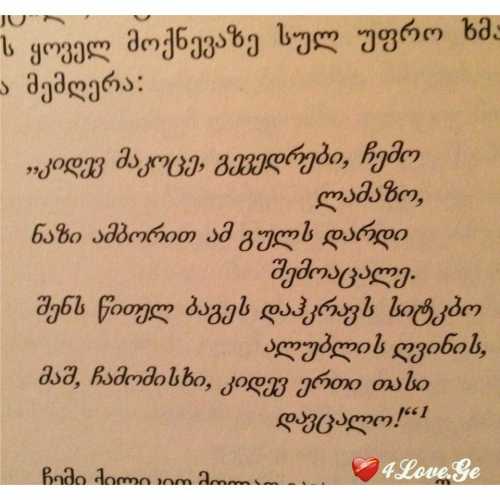 ს ყოველ მოქნევაზე სულ უფრო ხმა
ა მემღერა:
„კიდევ მაკოცე, გევედრები, ჩემო
ლამაზო,
ნაზი ამბორით ამ გულს დარდი
შემოაცალე.
შენს წითელ ბაგეს დაჰკრავს სიტკბო
ალუბლის ღვინის,
მაშ, ჩამომისხი, კიდევ ერთი თასი
დავცალო!“¹
ჩემი
4Love.Ge